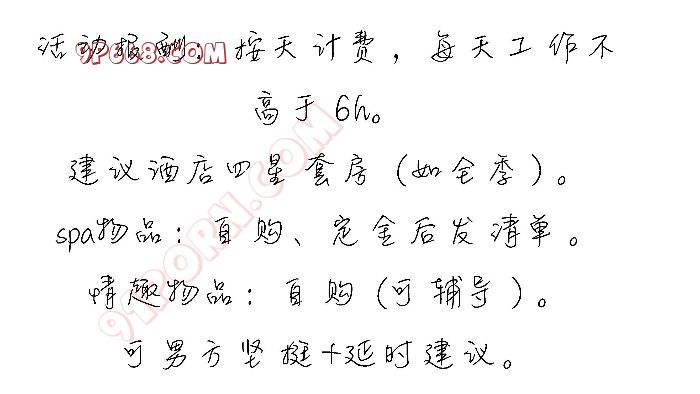 活动报酬：按天计费，每天工作不
高于6h。
建议酒店四星套房（如全季）。
spa物品：自购、定金后发清单。
情趣物品：自购（可辅导）。
可男方坚挺+延时建议。
9P668.COM
91PORN.COM